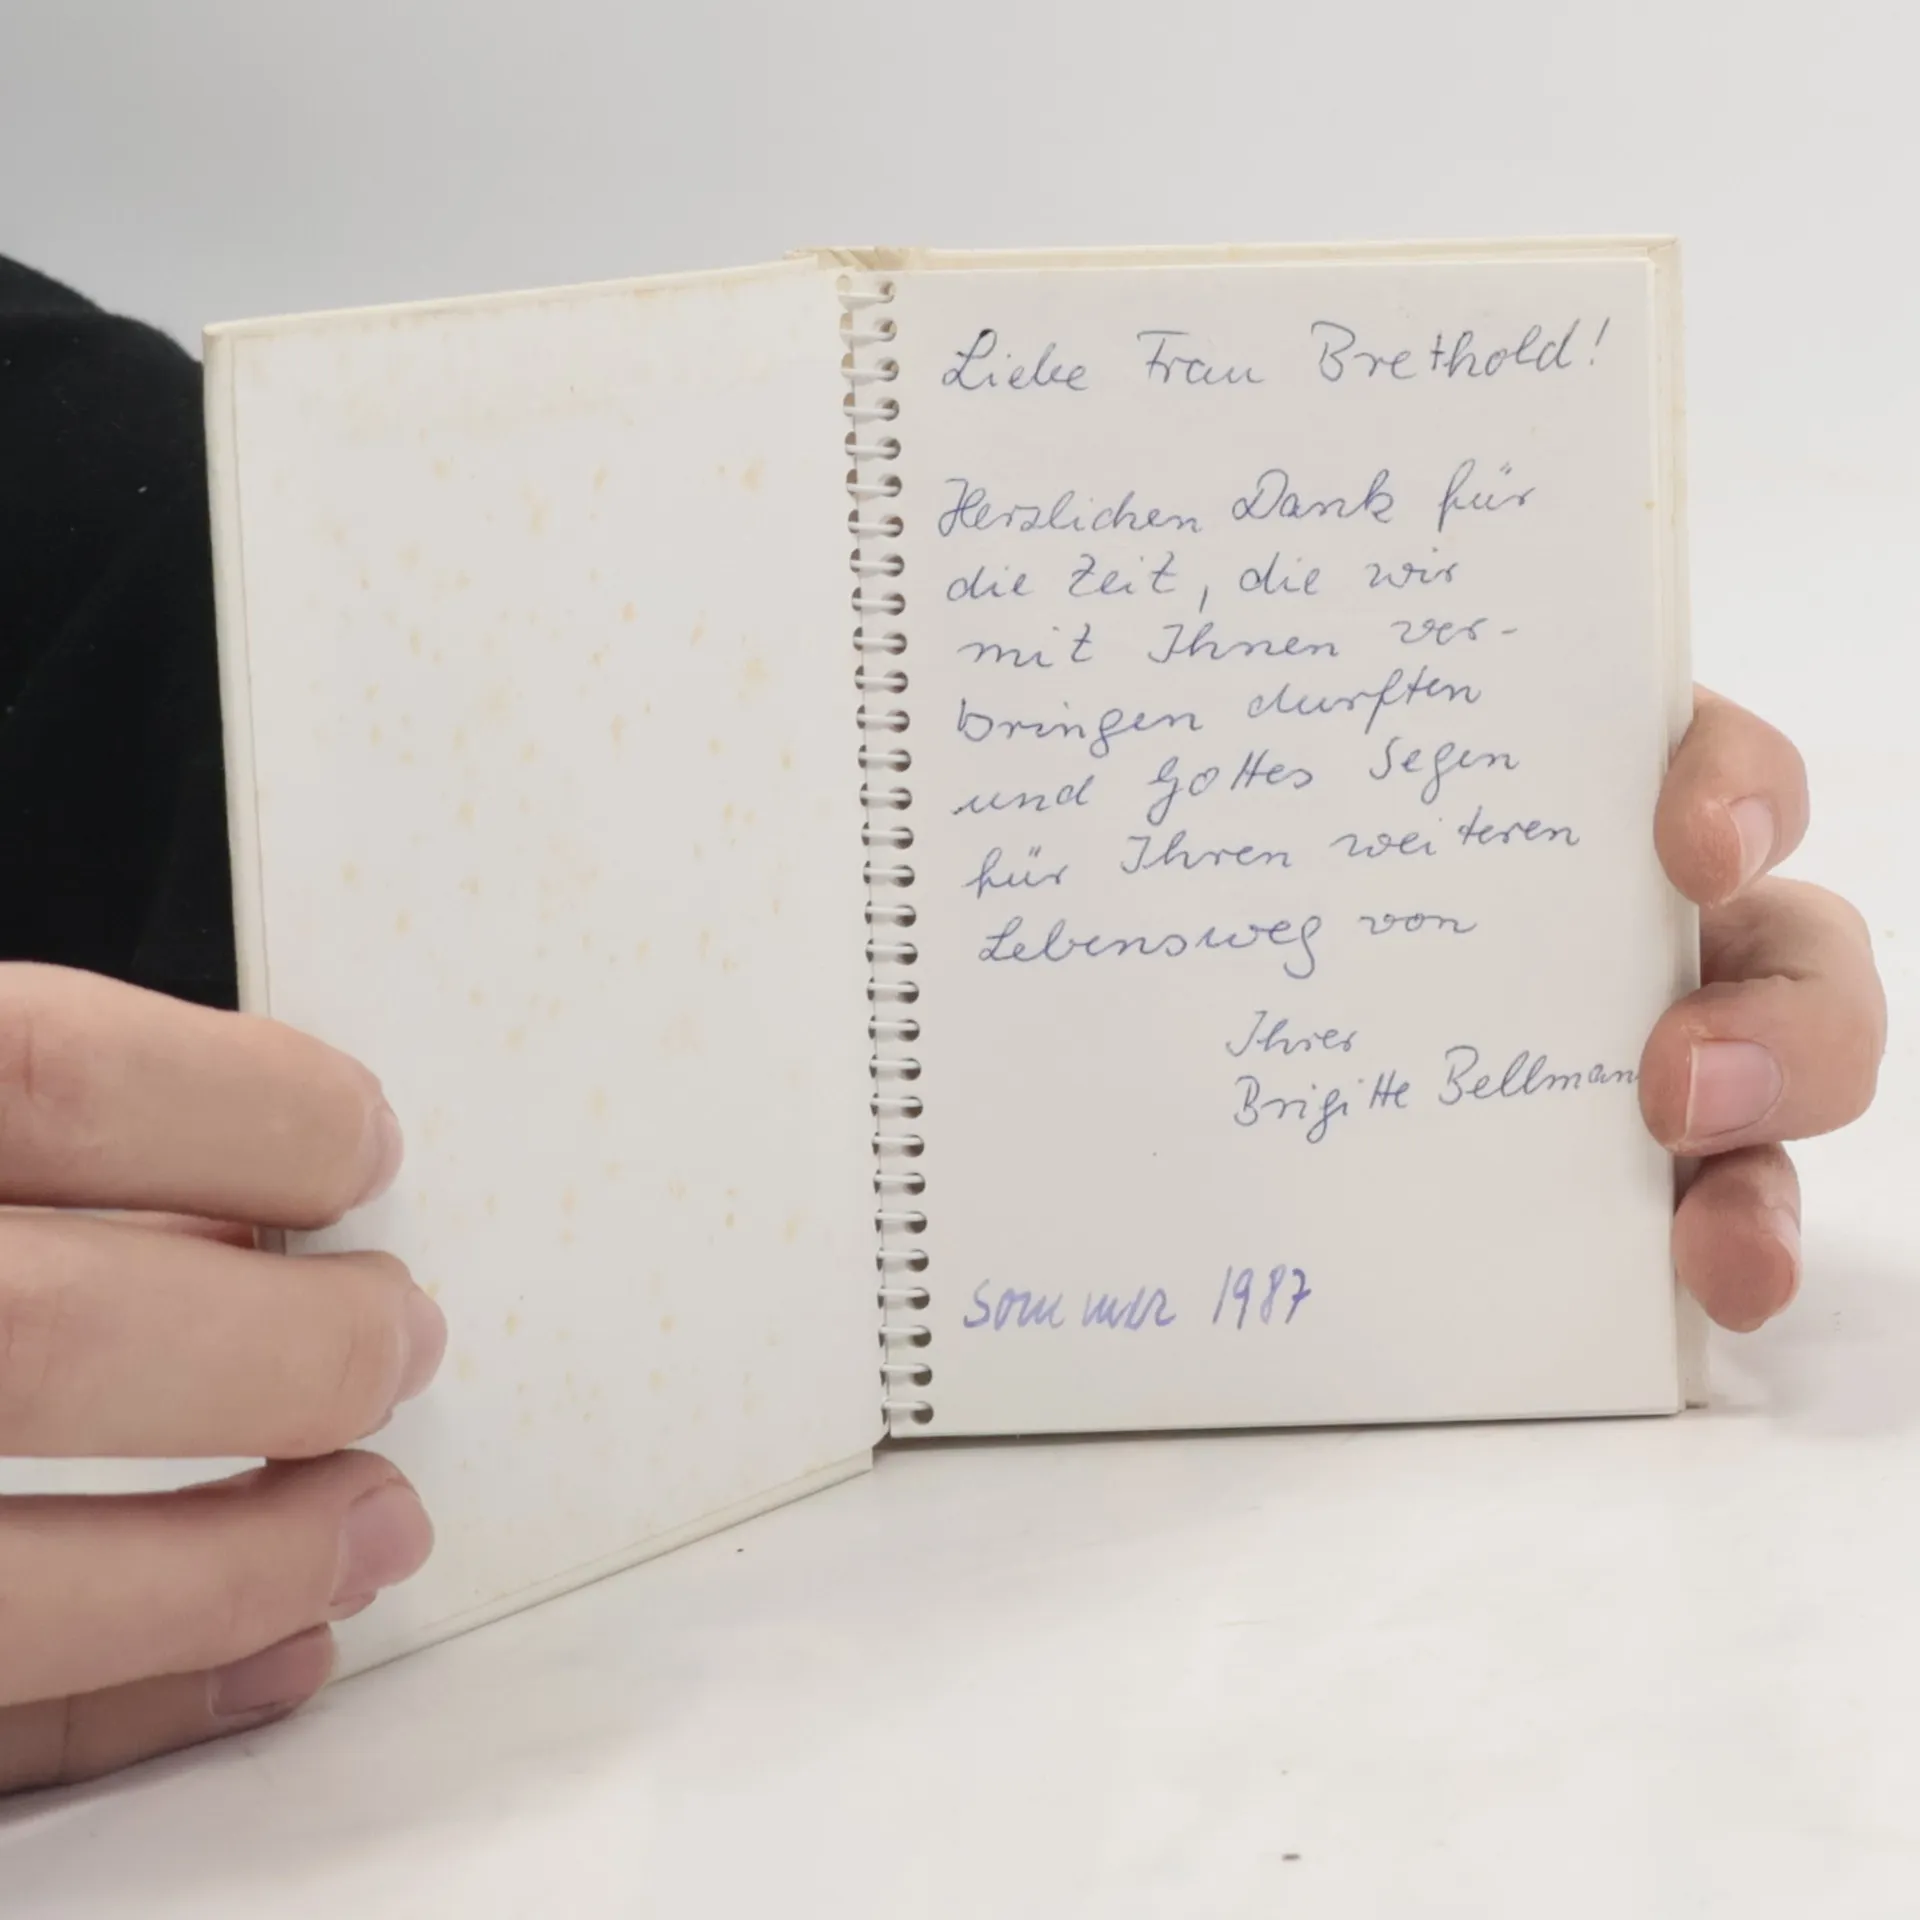 Liebe Frau Brethold!
Herzlichen Dank für
die Zeit, die wir
mit Ihnen ver-
bringen durften
und Gottes Segen
für Ihren weiteren
Lebensweg von
Ihrer
Brigitte Bellmann
Sommer 1987